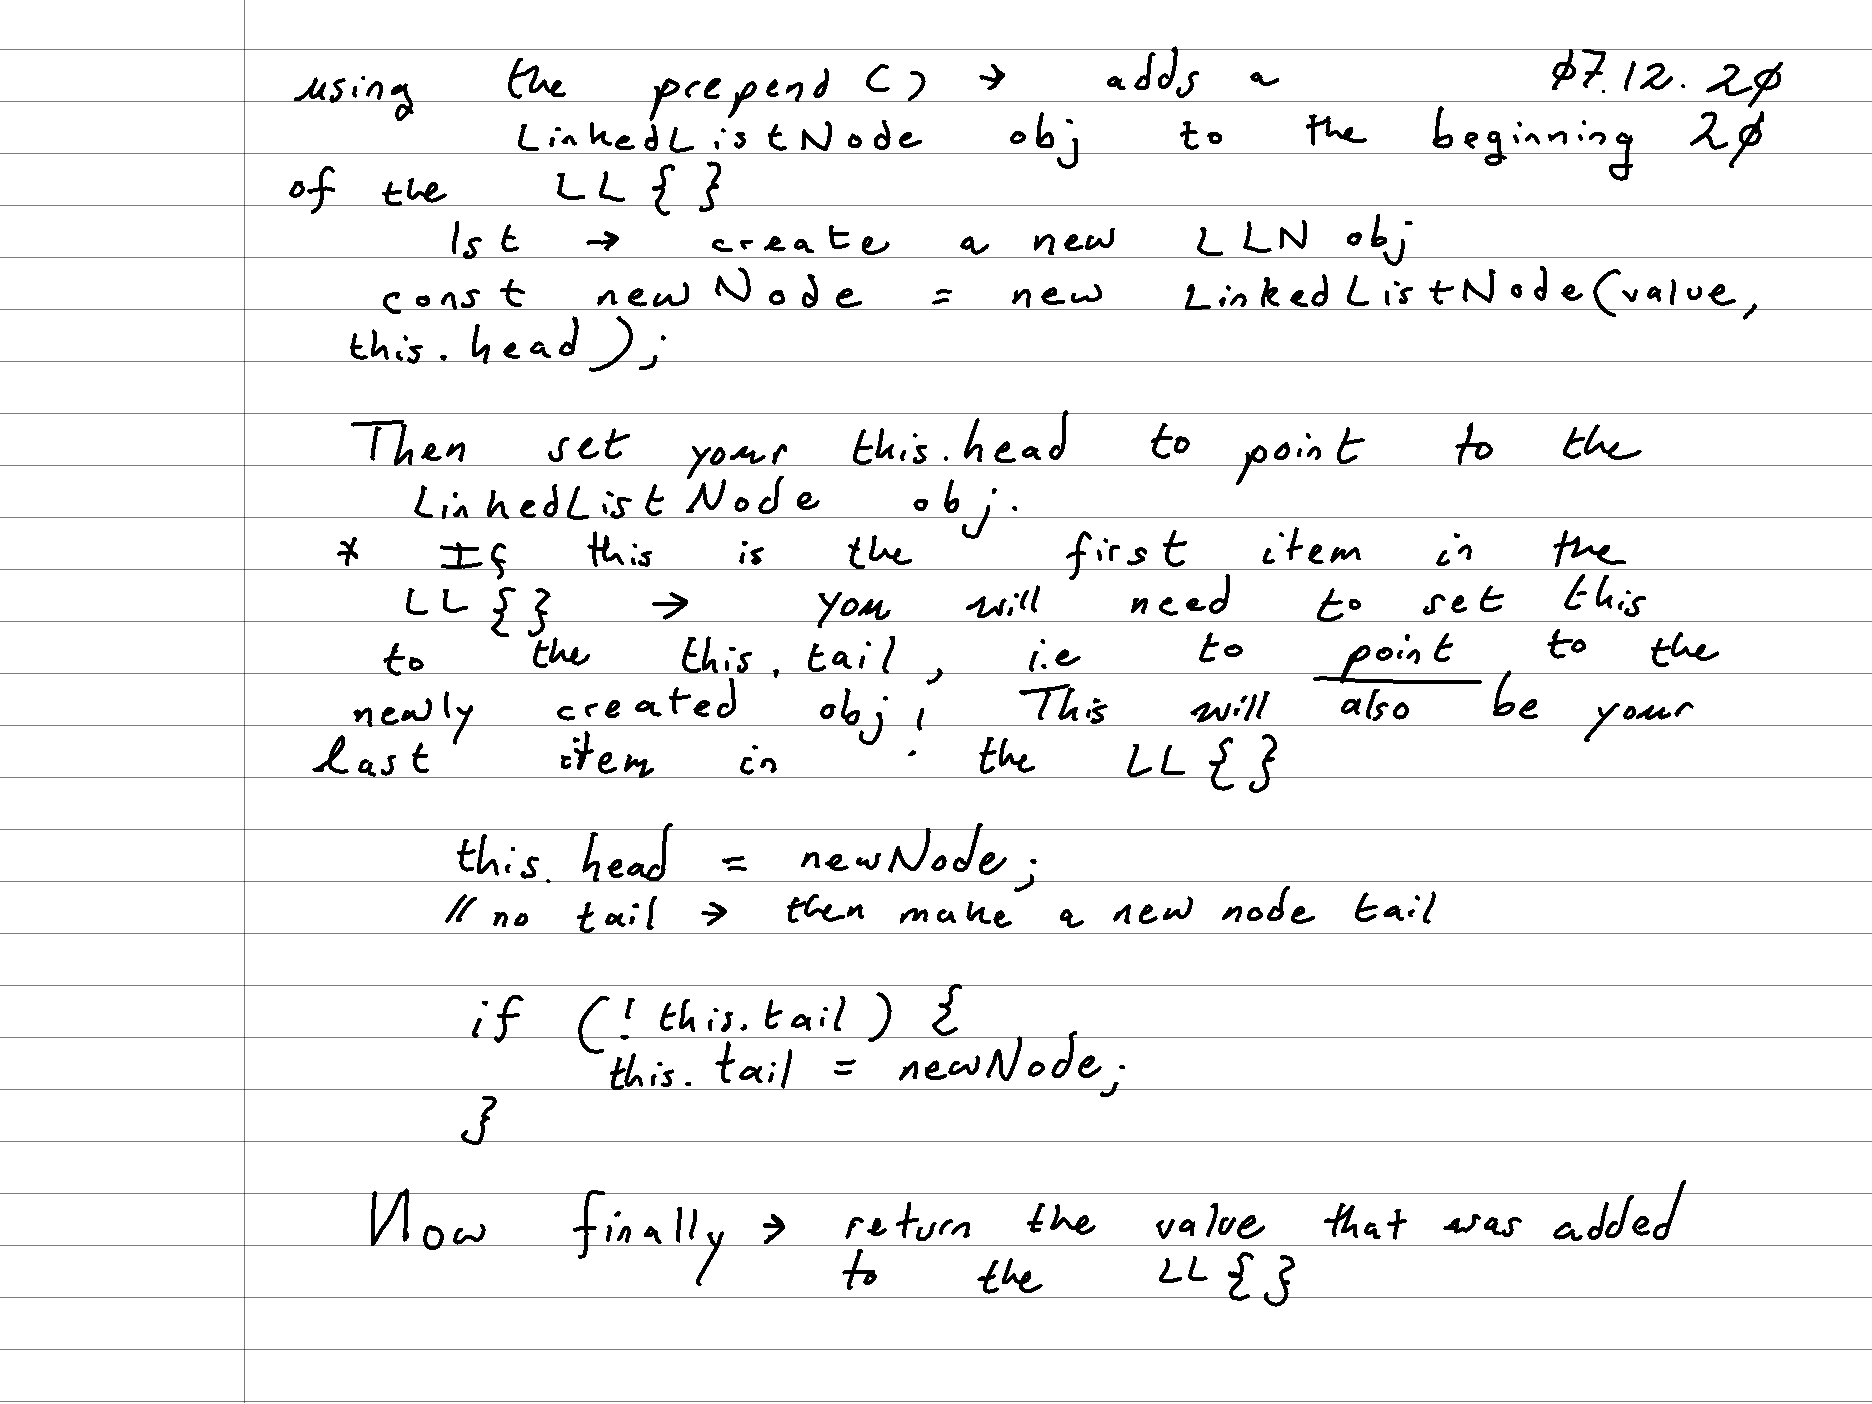 using the prepend () → adds a ø7.12.2ø
LinkedListNode obj to the beginning 2ø
of the LL { }
1st → create a new LLN obj
const newNode = new LinkedListNode(value,
this.head);
Then set your this.head to point to the
LinkedListNode obj.
* If this is the first item in the
LL { } → you will need to set this
to the this.tail, i.e to point to the
newly created obj! This will also be your
last item in the LL { }
this.head = newNode;
// no tail → then make a new node tail
if (!this.tail) {
this.tail = newNode;
}
Now finally → return the value that was added
to the LL { }